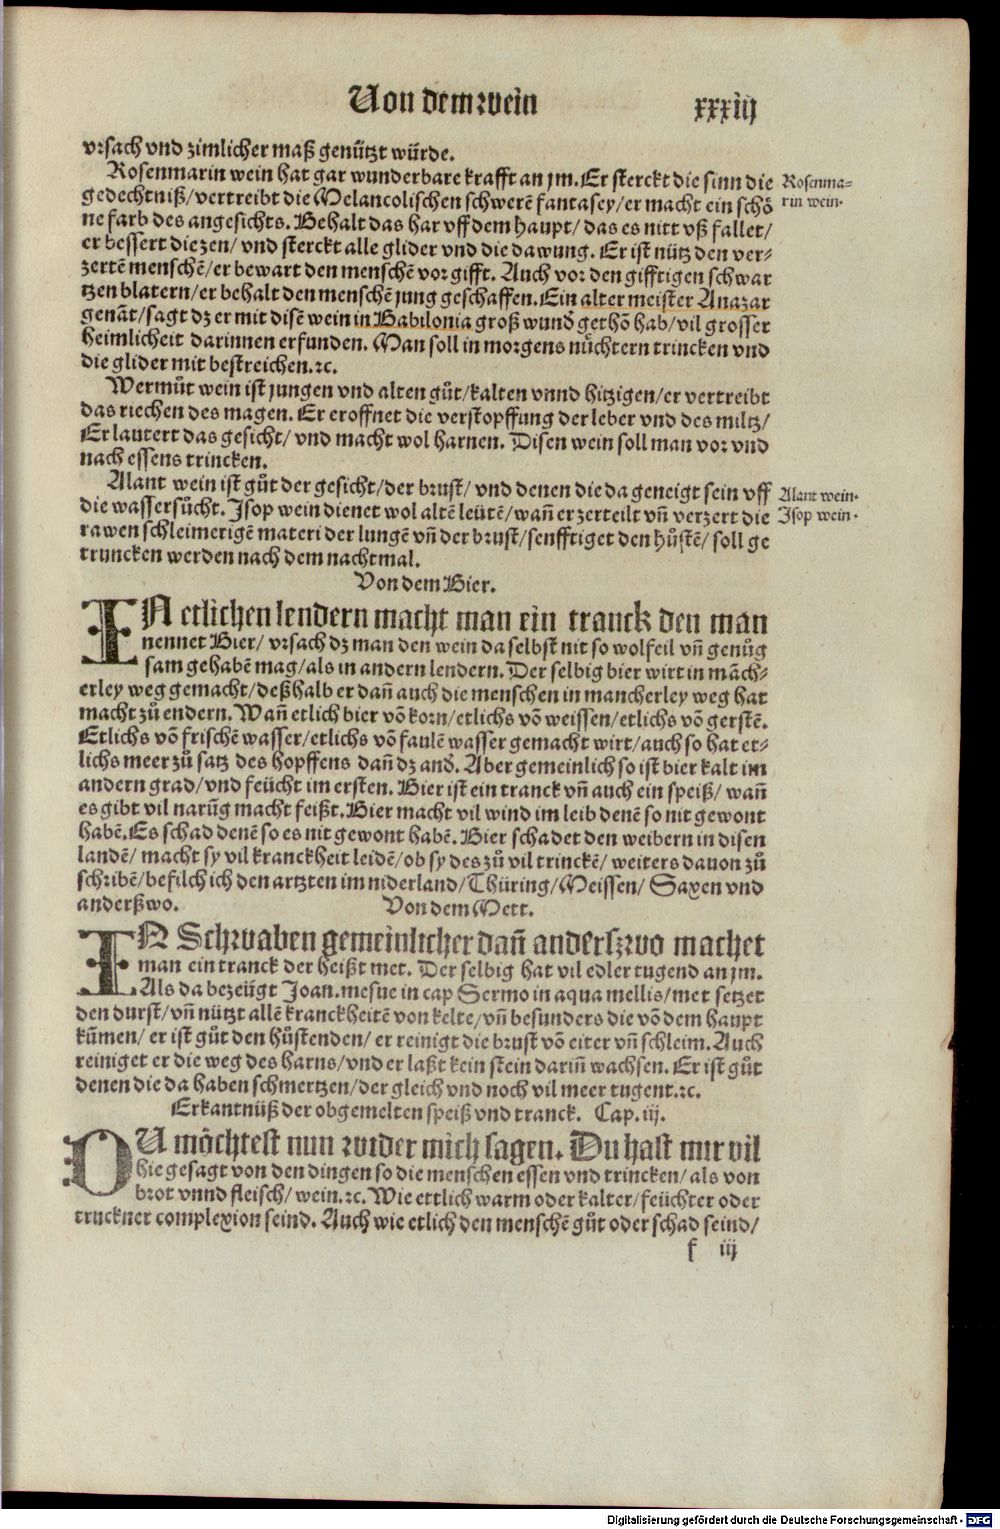 Von dem wein
xxxiij
vrsach vnd zimlicher maß genützt würde.
Rosenmarin wein hat gar wunderbare krafft an jm. Er sterckt die sinn die
Rosenma-
rin wein.
gedechtniß/vertreibt die Melancolischen schwerē fantasey/er macht ein schö
ne farb des angesichts. Behalt das har vff dem haupt/das es nitt vß fallet/
er bessert die zen/ vnd sterckt alle glider vnd die dawung. Er ist nütz den ver-
zertē menschē/er bewart den menschē vor gifft. Auch vor den gifftigen schwar
tzen blatern/er behalt den menschē jung geschaffen. Ein alter meister Anazar
genāt/sagt dz er mit disē wein in Babilonia groß wund̄ gethō hab/vil grosser
heimlicheit darinnen erfunden. Man soll in morgens nüchtern trincken vnd
die glider mit bestreichen.ꝛc.
Wermůt wein ist jungen vnd alten gůt/kalten vnnd hitzigen/er vertreibt
das riechen des magen. Er eroffnet die verstopffung der leber vnd des miltz/
Er lautert das gesicht/ vnd macht wol harnen. Disen wein soll man vor vnd
nach essens trincken.
Alant wein ist gůt der gesicht/der brust/ vnd denen die da geneigt sein vff
Alant wein.
die wassersůcht. Isop wein dienet wol altē leütē/wañ er zerteilt vñ verzert die
Isop wein.
rawen schleimerigē materi der lungē vñ der brust/senfftiget den hůstē/ soll ge
truncken werden nach dem nachtmal.
Von dem Bier.
IN etlichen lendern macht man ein tranck den man
nennet Bier/ vrsach dz man den wein da selbst nit so wolfeil vñ genůg
sam gehabē mag/als in andern lendern. Der selbig bier wirt in māch-
erley weg gemacht/deßhalb er dañ auch die menschen in mancherley weg hat
macht zů endern. Wañ etlich bier vō korn/etlichs vō weissen/etlichs vō gerstē.
Etlichs vō frischē wasser/etlichs vō faulē wasser gemacht wirt/auch so hat et-
lichs meer zů satz des hopffens dañ dz and̄. Aber gemeinlich so ist bier kalt im
andern grad/vnd feücht im ersten. Bier ist ein tranck vñ auch ein speiß/ wañ
es gibt vil narūg macht feißt. Bier macht vil wind im leib denē so nit gewont
habē. Es schad denē so es nit gewont habē. Bier schadet den weibern in disen
landē/ macht sy vil kranckheit leidē/ob sy des zů vil trinckē/ weiters dauon zů
schribē/befilch ich den artzten im niderland/Thüring/Meissen/ Saxen vnd
anderßwo.
Von dem Mett.
IN Schwaben gemeinlicher dañ anderszwo machet
man ein tranck der heißt met. Der selbig hat vil edler tugend an jm.
Als da bezeügt Joan.mesue in cap Sermo in aqua mellis/met setzet
den durst/vñ nützt allē kranckheitē von kelte/vñ besunders die vō dem haupt
kūmen/ er ist gůt den hůstenden/ er reinigt die brust vō eiter vñ schleim. Auch
reiniget er die weg des harns/vnd er laßt kein stein dariñ wachsen. Er ist gůt
denen die da haben schmertzen/der gleich vnd noch vil meer tugent.ꝛc.
Erkantnüß der obgemelten speiß vnd tranck. Cap.iij.
DU möchtest nun wider mich sagen. Du hast mir vil
hie gesagt von den dingen so die menschen essen vnd trincken/als von
brot vnnd fleisch/ wein.ꝛc. Wie ettlich warm oder kalter/feüchter oder
truckner complexion seind. Auch wie etlich den menschē gůt oder schad seind/
f iij
Digitalisierung gefördert durch die Deutsche Forschungsgemeinschaft - DFG